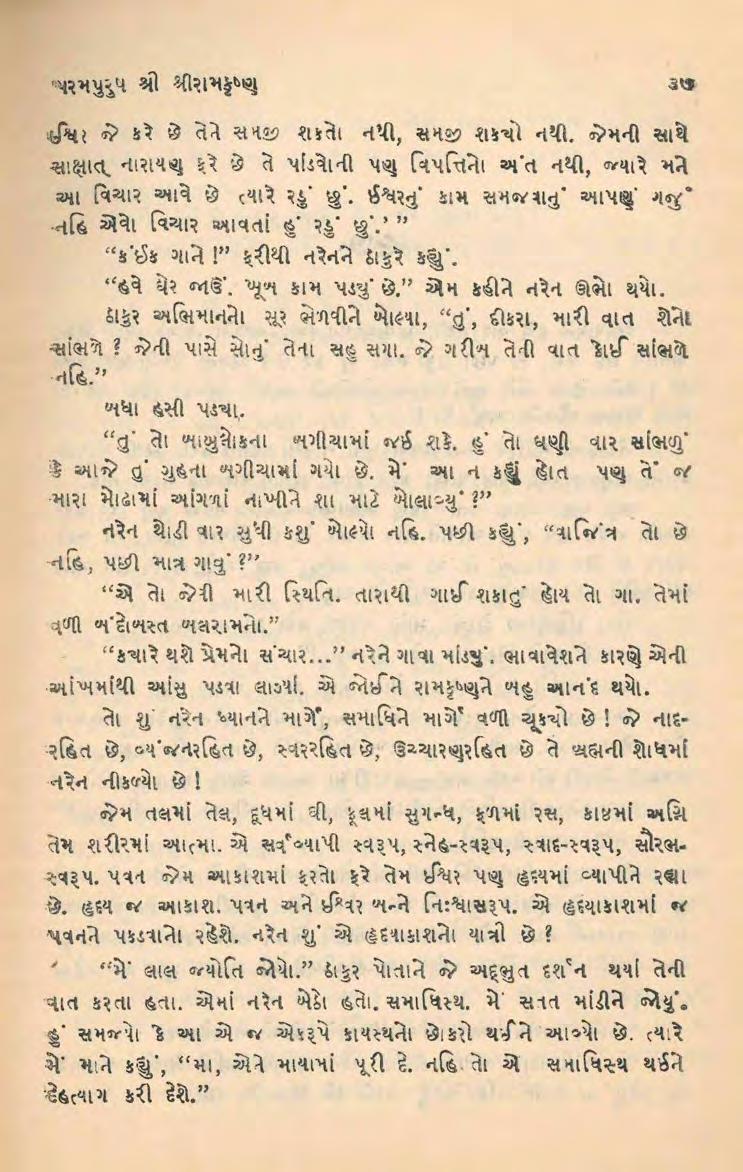 પરમપુરુષ શ્રી શ્રીરામકૃષ્ણ ૩૭
ઈશ્વર જે કરે છે તેને સમજી શકતો નથી, સમજી શક્યો નથી. જેમની સાથે
સાક્ષાત્ નારાયણ ફરે છે તે પાંડવોની પણ વિપત્તિનો અંત નથી, જ્યારે મને
આ વિચાર આવે છે ત્યારે રડું છું. ઈશ્વરનું કામ સમજવાનું આપણું ગજું
નહિ એવો વિચાર આવતાં હું રડું છું.’ ”
“કંઈક ગાને !” ફરીથી નરેનને ઠાકુરે કહ્યું.
“હવે ઘેર જાઉં. ખૂબ કામ પડ્યું છે.” એમ કહીને નરેન ઊભો થયો.
ઠાકુર અભિમાનનો સૂર ભેળવીને બોલ્યા, “તું, દીકરા, મારી વાત શેનો
સાંભળે ? જેની પાસે સોનું તેના સહુ સગા. જે ગરીબ તેની વાત કોઈ સાંભળે
નહિ.”
બધા હસી પડ્યા.
“તું તો બાબુલોકના બગીચામાં જઈ શકે. હું તો ઘણી વાર સાંભળું
કે આજે તું ગુહના બગીચામાં ગયો છે. મેં આ ન કહ્યું હોત પણ તેં જ
મારા મોઢામાં આંગળાં નાખીને શા માટે બોલાવ્યું ?”
નરેન થોડી વાર સુધી કશું બોલ્યો નહિ. પછી કહ્યું, “વાજિંત્ર તો છે
નહિ, પછી માત્ર ગાવું ?”
“એ તો જેવી મારી સ્થિતિ. તારાથી ગાઈ શકાતું હોય તો ગા. તેમાં
વળી બંદોબસ્ત બલરામનો.”
“ક્યારે થશે પ્રેમનો સંચાર...” નરેને ગાવા માંડ્યું. ભાવાવેશને કારણે એની
આંખમાંથી આંસુ પડવા લાગ્યાં. એ જોઈને રામકૃષ્ણને બહુ આનંદ થયો.
તો શું નરેન ધ્યાનને માર્ગે, સમાધિને માર્ગે વળી ચૂક્યો છે ! જે નાદ-
રહિત છે, વ્યંજનરહિત છે, સ્વરરહિત છે, ઉચ્ચારણરહિત છે તે બ્રહ્મની શોધમાં
નરેન નીકળ્યો છે !
જેમ તલમાં તેલ, દૂધમાં ઘી, ફૂલમાં સુગન્ધ, ફળમાં રસ, કાષ્ઠમાં અગ્નિ
તેમ શરીરમાં આત્મા. એ સર્વવ્યાપી સ્વરૂપ, સ્નેહ-સ્વરૂપ, સ્વાદ-સ્વરૂપ, સૌરભ-
સ્વરૂપ. પવન જેમ આકાશમાં ફરતો ફરે તેમ ઈશ્વર પણ હૃદયમાં વ્યાપીને રહ્યા
છે. હૃદય જ આકાશ. પવન અને ઈશ્વર બન્ને નિઃશ્વાસરૂપ. એ હૃદયાકાશમાં જ
પવનને પકડવાનો રહેશે. નરેન શું એ હૃદયાકાશનો યાત્રી છે ?
“મેં લાલ જ્યોતિ જોયો.” ઠાકુર પોતાને જે અદ્ભુત દર્શન થયાં તેની
વાત કરતા હતા. એમાં નરેન બેઠો હતો. સમાધિસ્થ. મેં સતત માંડીને જોયું.
હું સમજ્યો કે આ એ જ એકરૂપે કાયસ્થનો છોકરો થઈને આવ્યો છે. ત્યારે
મેં માને કહ્યું, “મા, એને માયામાં પૂરી દે. નહિ તો એ સમાધિસ્થ થઈને
દેહત્યાગ કરી દેશે.”